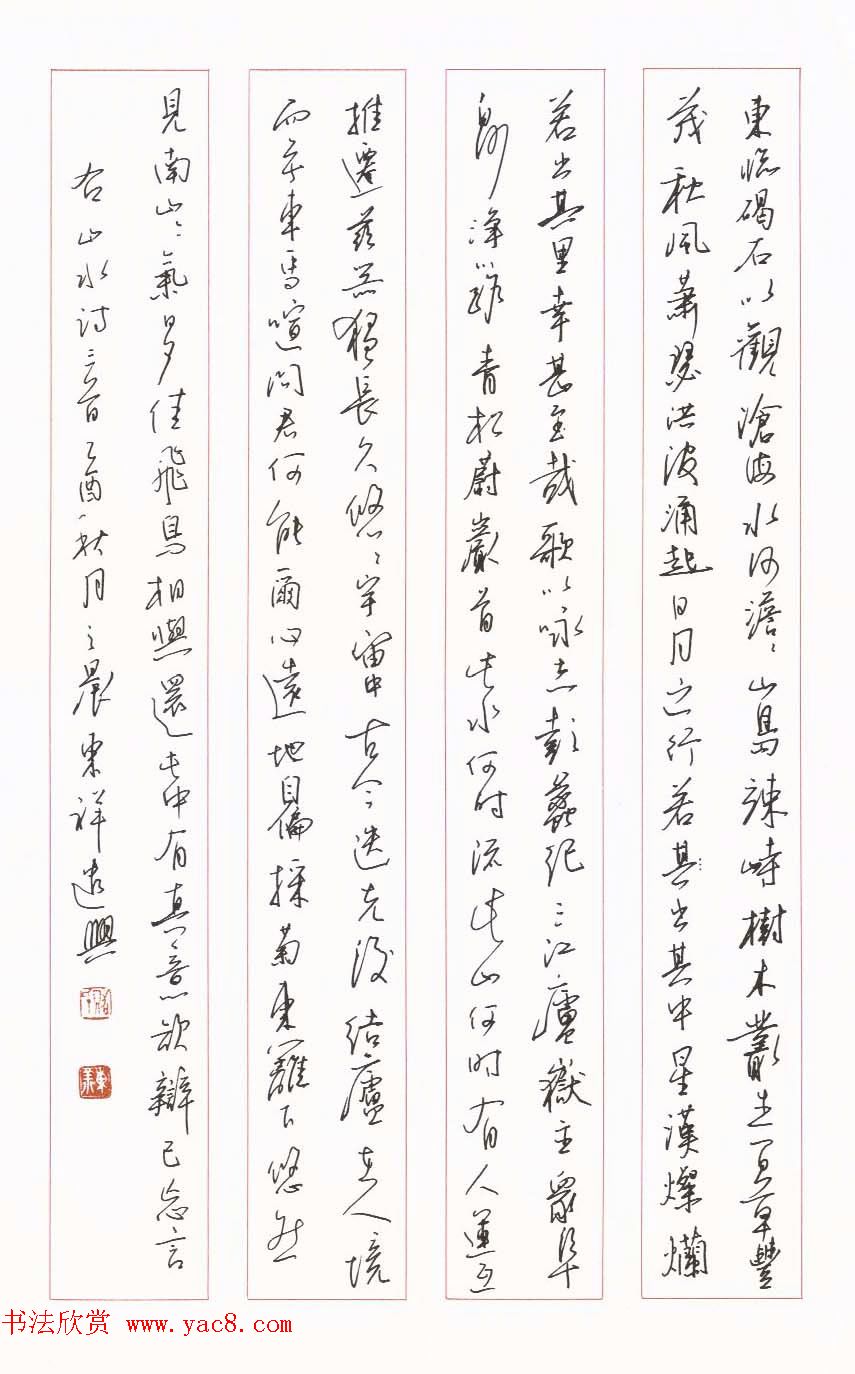 東臨碣石以觀滄海水何澹〻山島竦峙樹木叢生百草豐
茂秋風蕭瑟洪波涌起日月之行若出其中星漢燦爛
若出其里幸甚至哉歌以咏志彭蠡紀三江廬嶽主衆阜
白沙淨川路青松蔚巖首此水何时流此山何时有人運互
推遷茲器獨長久悠〻宇宙中古今迭先後结廬在人境
而无車馬喧问君何能爾心遠地自偏採菊東籬下悠然
見南山〻氣日夕佳飛鳥相與還此中有真意欲辯已忘言
右山水诗三首乙酉秋月之晨東祥遣興
書法欣赏 www.yac8.com